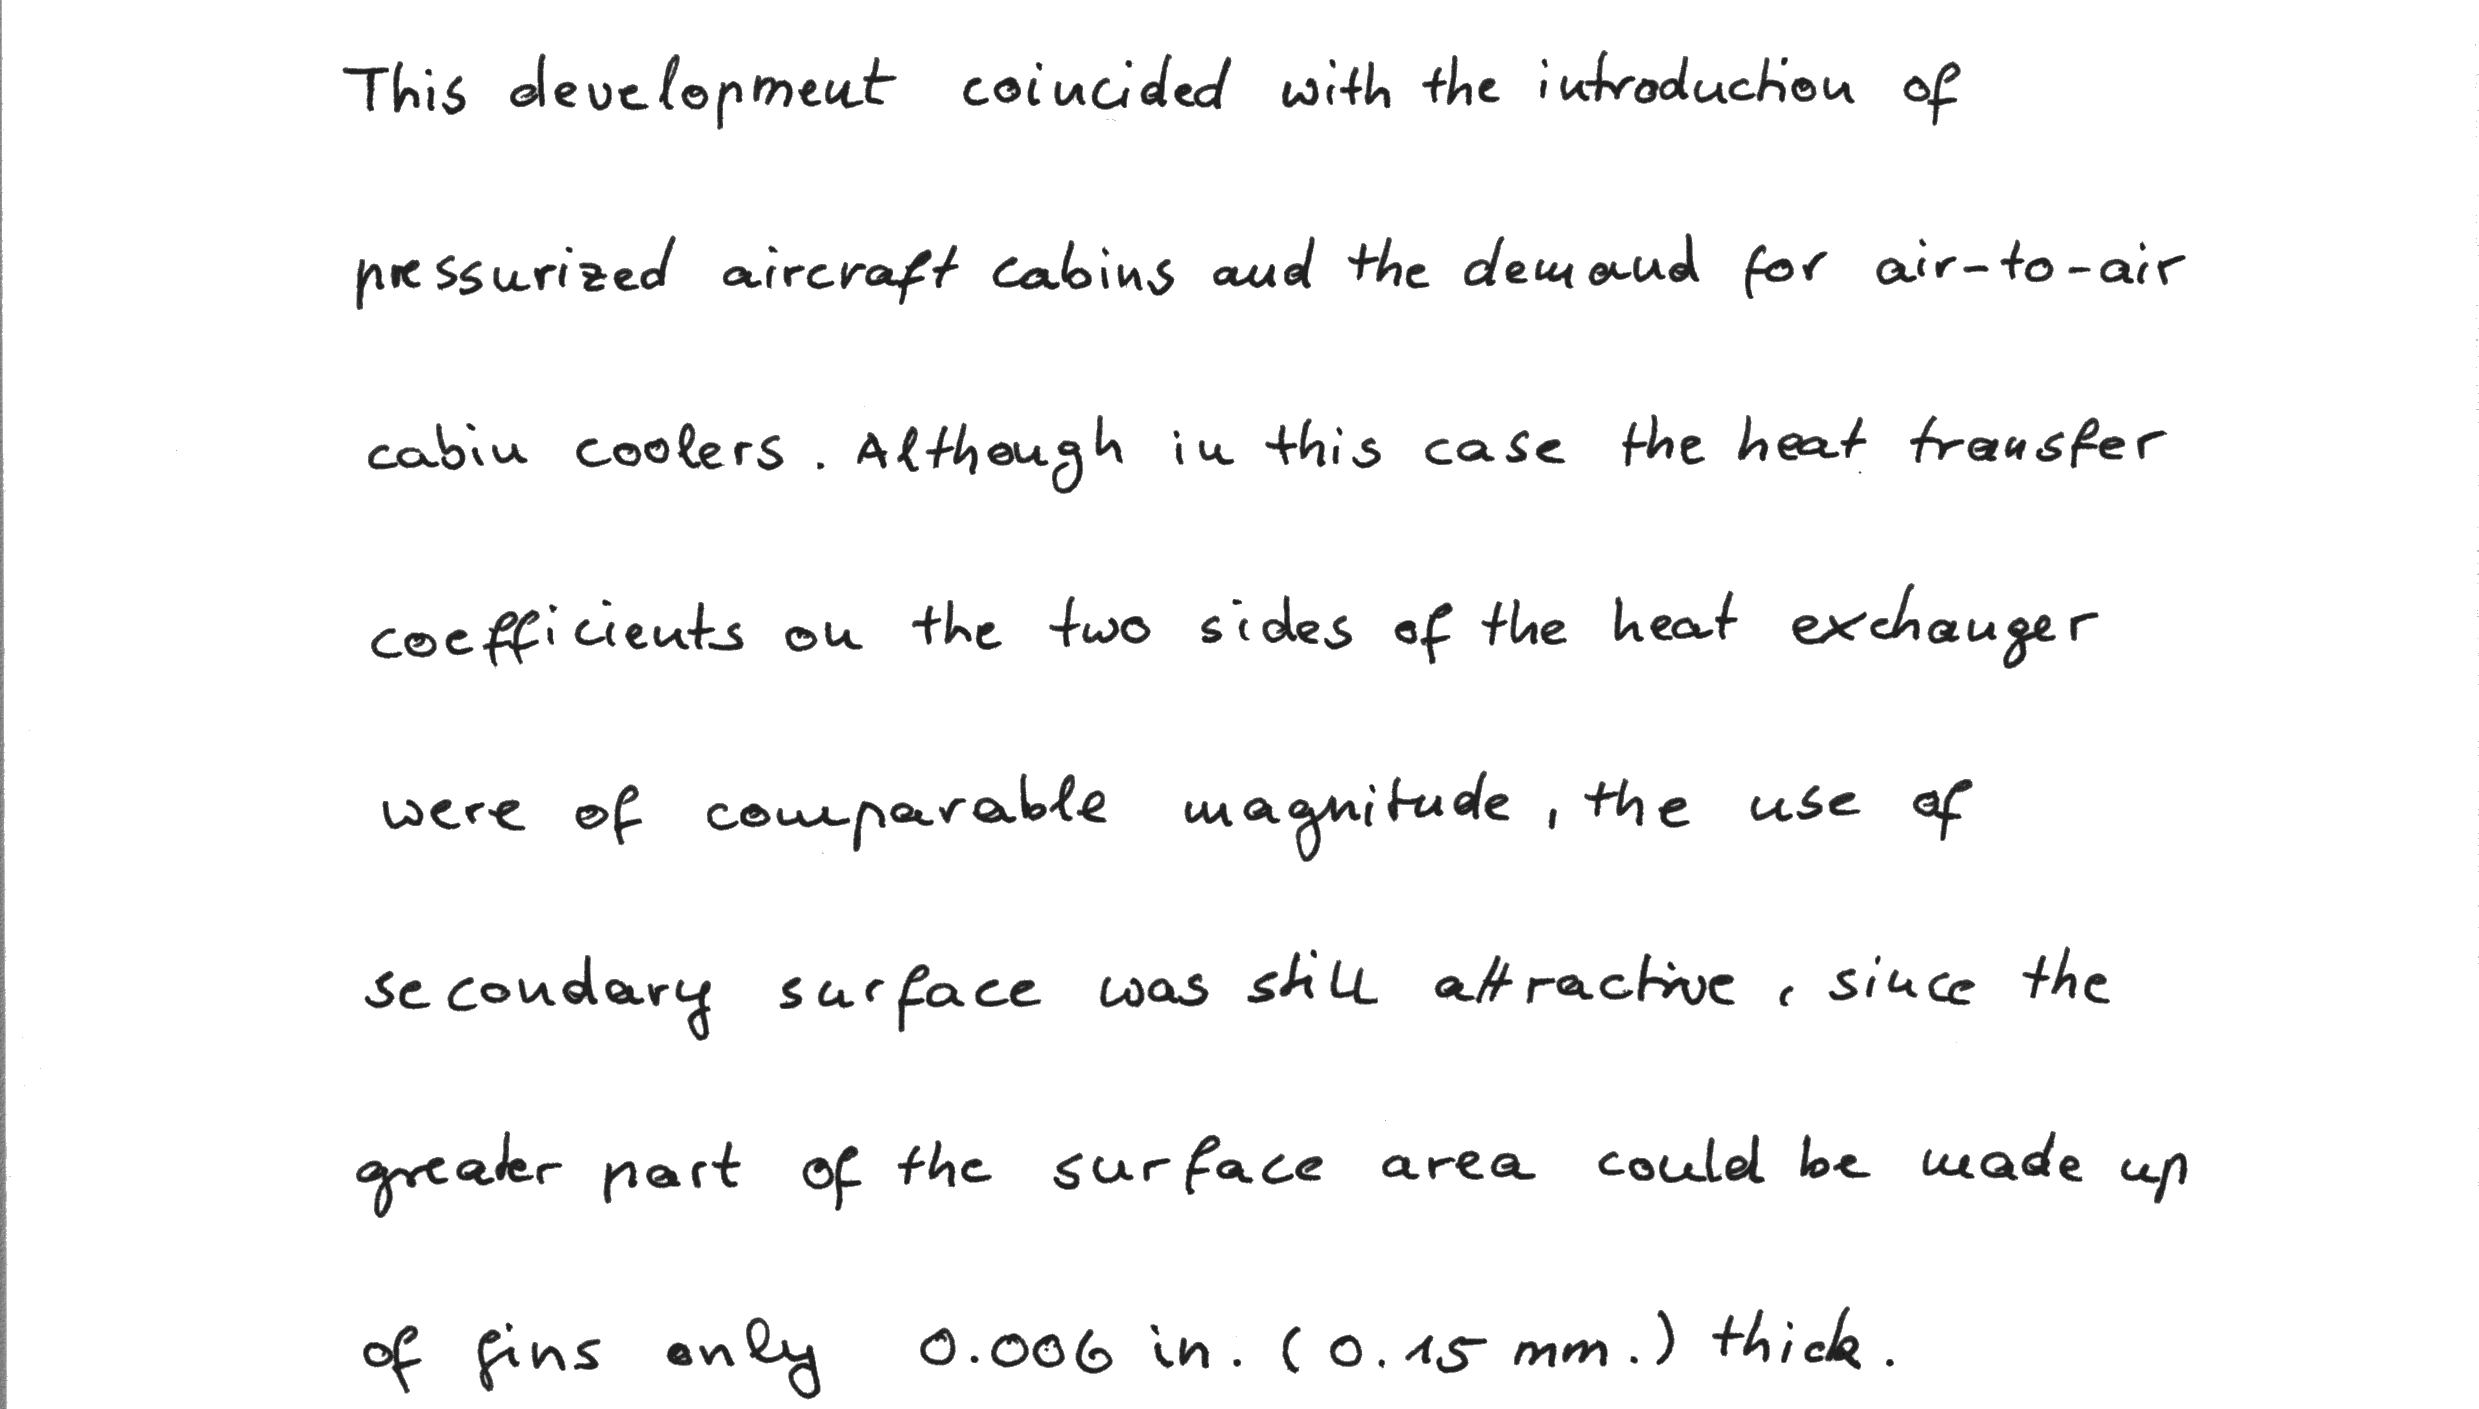 This development coincided with the introduction of
pressurized aircraft cabins and the demand for air-to-air
cabin coolers. Although in this case the heat transfer
coefficients on the two sides of the heat exchanger
were of comparable magnitude, the use of
secondary surface was still attractive, since the
greater part of the surface area could be made up
of fins only 0.006 in. (0.15 mm.) thick.